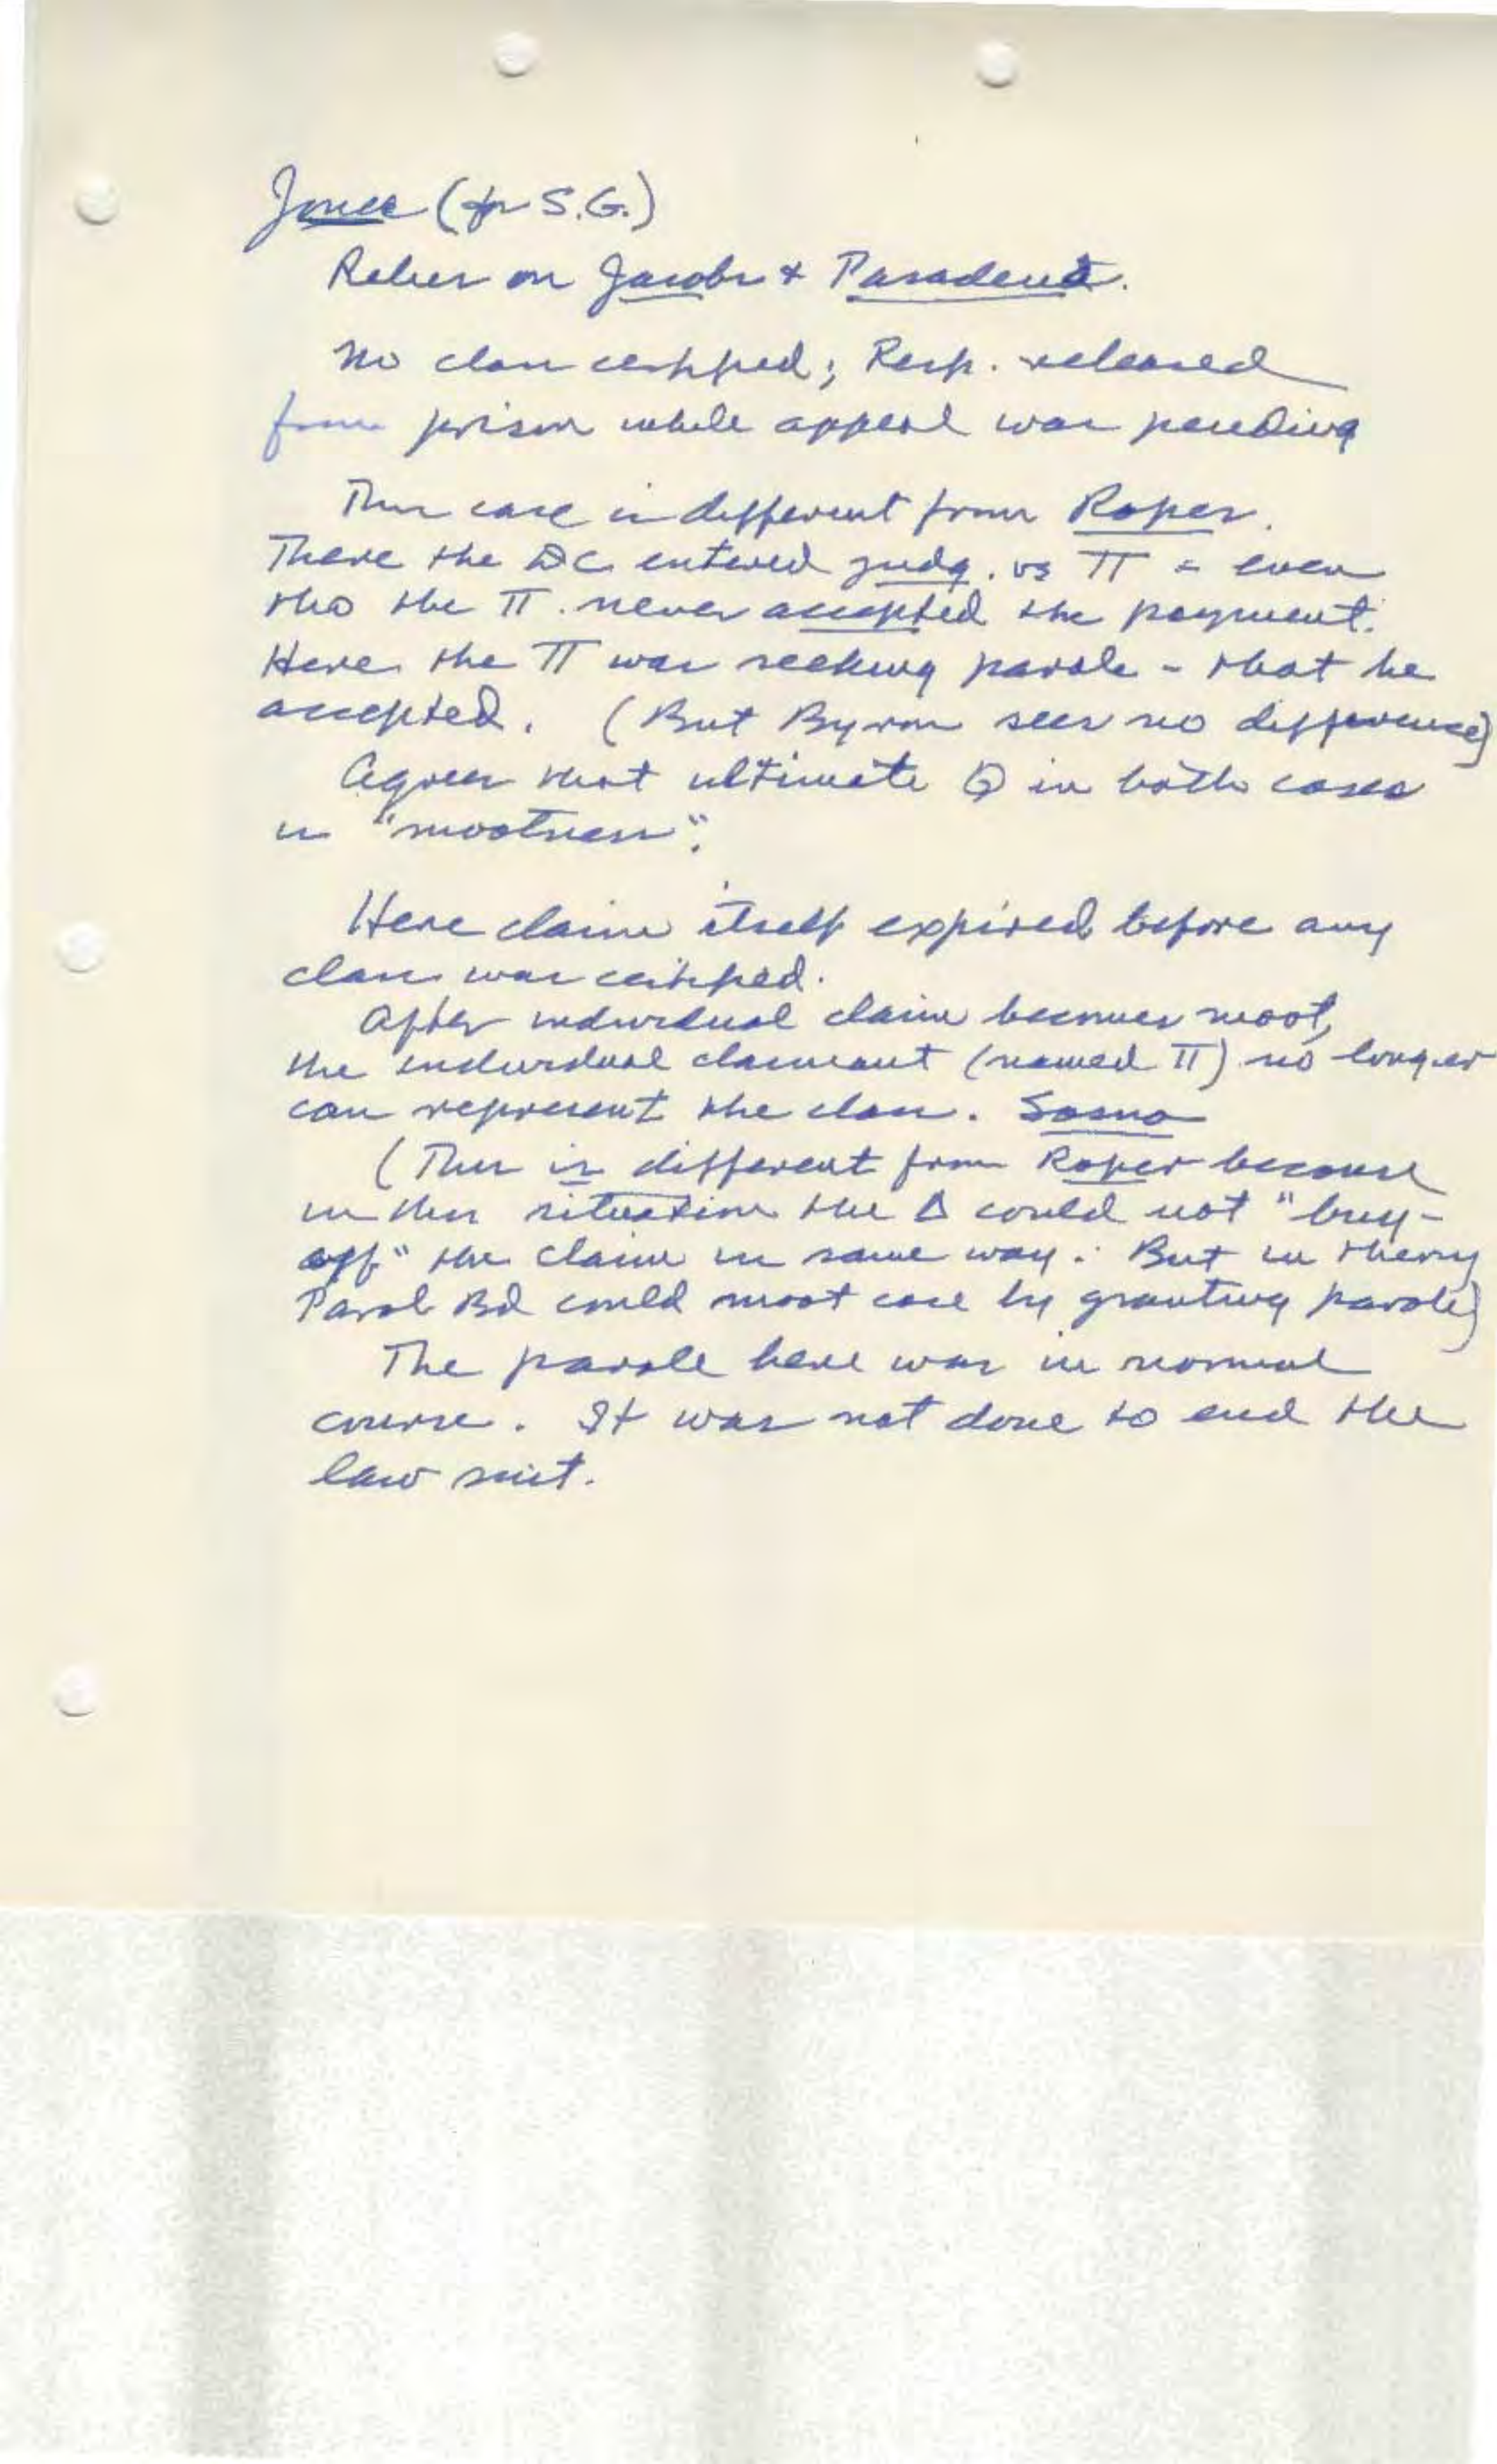 Jones (for S.G.)
Relies on Jacobs & Pasadena.
No class certified; Resp. released
from prison while appeal was pending
This case is different from Roper.
There the DC entered judg. vs π - even
tho the π never accepted the payment.
Here the π was seeking parole - that he
accepted. (But Byron sees no difference)
Agrees that ultimate Q in both cases
is "mootness".
Here claim itself expired before any
class was certified.
After individual claim becomes moot,
the individual claimant (named π) no longer
can represent the class. Sosna
(This is different from Roper because
in this situation the Δ could not "buy-
off" the claim in same way. But in theory
Parol Bd could moot case by granting parole)
The parole here was in normal
course. It was not done to end the
law suit.